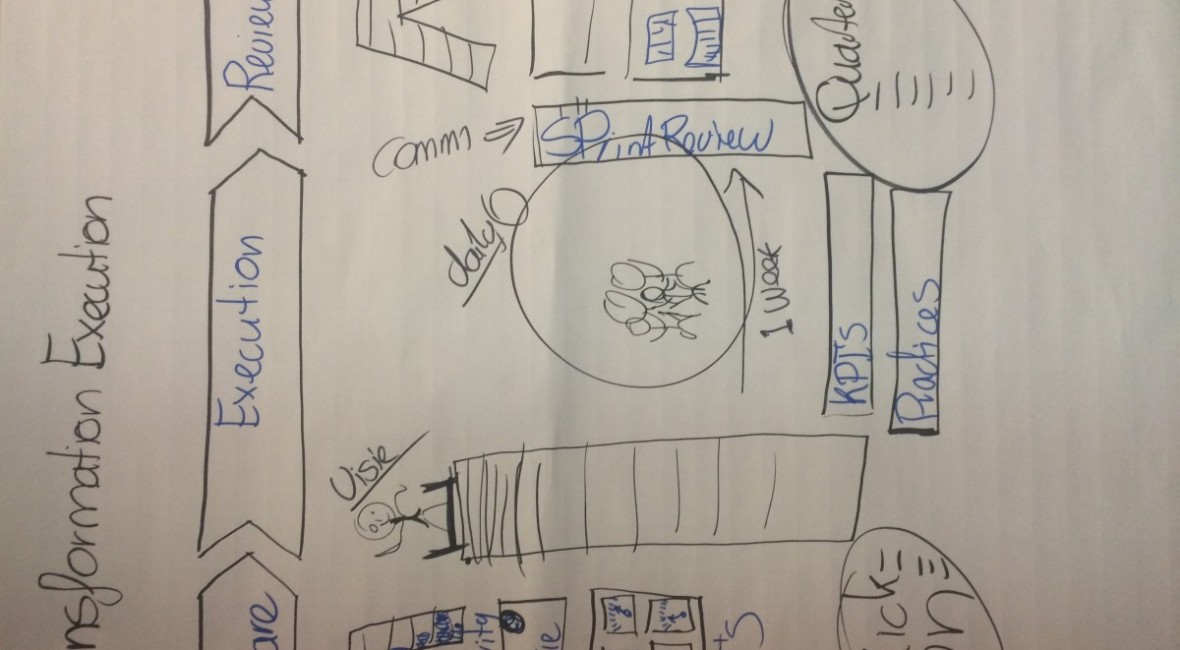 nsformation Execution
are
Execution
Review
Visie
daily
Comm ⇒
SPrint Review
ity
ie
ts
1 Week
KPIS
Practices
ick
on